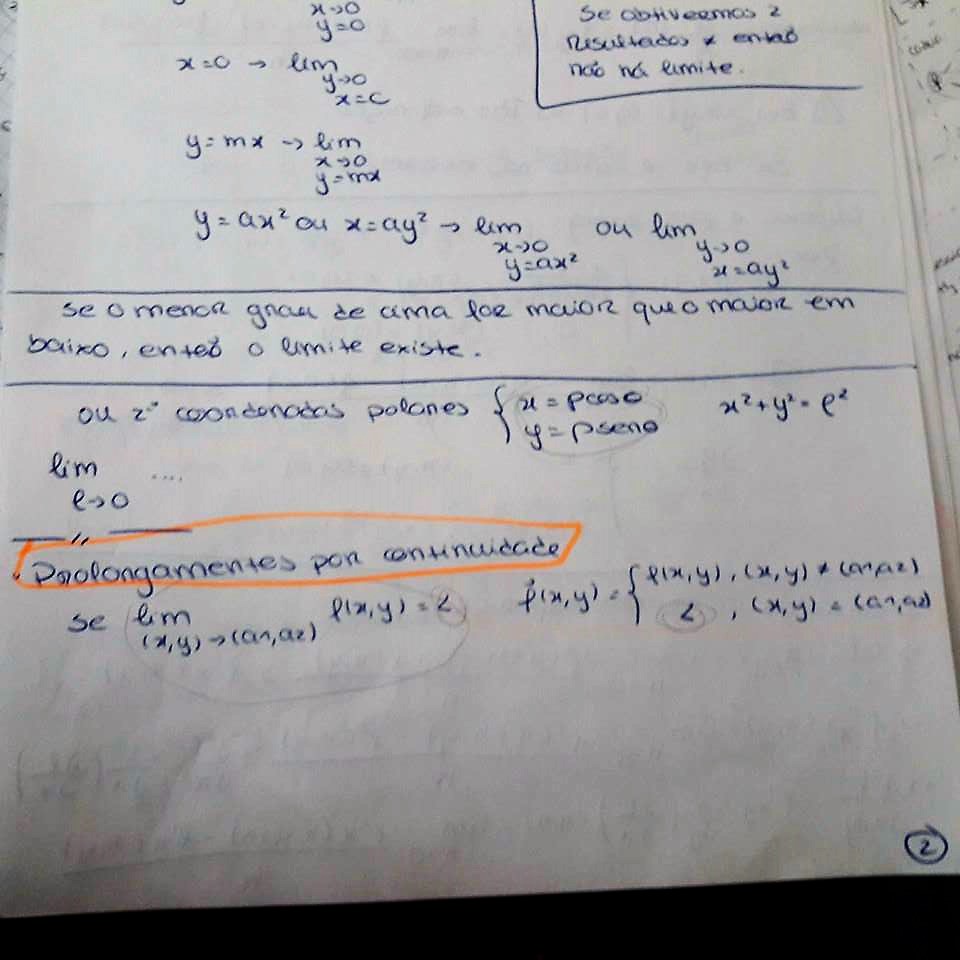 x→0
y=0
Se obtivermos 2
resultados ≠ então
não há limite.
x=0 → lim
y→0
x=c
y=mx → lim
x→0
y=mx
y=ax² ou x=ay² → lim ou lim
x→0 y→0
y=ax² x=ay²
Se o menor grau de cima for maior que o maior em
baixo, então o limite existe.
ou 2º coordenadas polares { x = ρcosθ x²+y²=ρ²
y = ρsenθ
lim ....
ρ→0
Prolongamentes por continuidade
se lim f(x,y) = L f̃(x,y) = { f(x,y), (x,y) ≠ (a1,a2)
(x,y)→(a1,a2) L, (x,y) = (a1,a2)
2